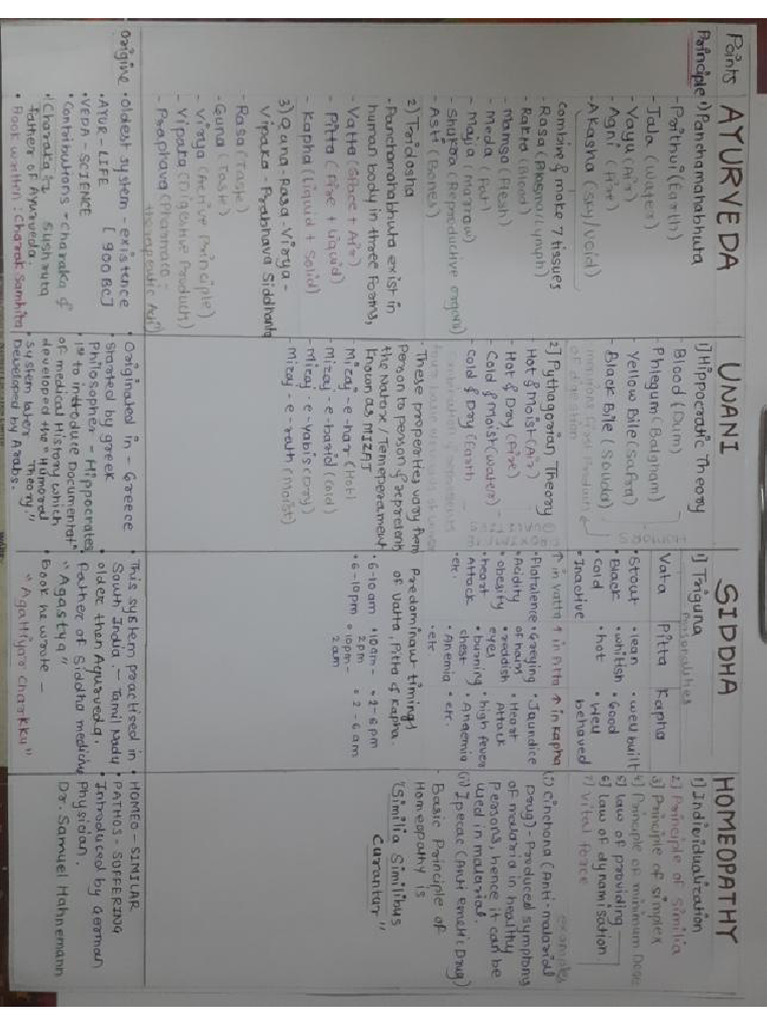 Points
AYURVEDA
UNANI
SIDDHA
HOMEOPATHY
Principle
1) Panchamahabhuta
- Prithvi (Earth)
- Jala (water)
- Vayu (Air)
- Agni (Fire)
- Akasha (sky/void)
combine & make 7 tissues
- Rasa (Plasma/Lymph)
- Rakta (Blood)
- Mamsa (Flesh)
- Meda (Fat)
- Majja (Marrow)
- Shukra (Reproductive organs)
- Asti (Bones)
2) Tridosha
• Panchamahabhuta exist in
human body in three forms,
- Vatta (Ether + Air)
- Pitta (Fire + Liquid)
- Kapha (Liquid + Solid)
3) Guna - Rasa - Virya -
Vipaka - Prabhava Siddhanta
- Rasa (Taste)
- Guna (Taste)
- Virya (Active Principle)
- Vipaka (Digestive Product)
- Prabhava (Pharmaco-
therapeutic Act)
1) Hippocratic Theory
- Blood (Dum)
- Phlegum (Balgham)
- Yellow Bile (Safra)
- Black Bile (Souda)
of digestion
2) Pythagorian Theory
- Hot & Moist (Air)
- Hot & Dry (Fire)
- Cold & Moist (water) -
- Cold & Dry (Earth -
• These properties vary from
person to person & it depends on
the Nature/Temperament
known as MIZAJ
Mizaj - e - har (Hot)
- Mizaj - e - barid (cold)
- Mizaj - e - yabis (Dry)
- Mizaj - e - ratb (Moist)
1) Triguna
Personalities
Vata Pitta Kapha
• Stout • lean • well built
• Black • whitish • Good
• cold • hot • Well
• Inactive behaved
↑ in vatta ↑ in Pitta ↑ in kapha
• Flatulence • Greying • Jaundice
• Acidity of hairs • Heart
• obesity • reddish Attack
• heart eyes • high fever
Attack • burning • Anaemia
• etc. chest • etc.
• Anemia
• etc
Predominant timings
of Vatta, Pitta & Kapha.
• 6-10 am • 10 am - • 2-6 pm
2 pm
• 6-10pm • 10pm - • 2 - 6 am
2 am
1) Individualization
2) Principle of Similia
3) Principle of simplex
4) Principle of minimum Dose
5) law of providing
6) law of dynamisation
7) Vital force
examples
(i) Cinchona (Anti-malarial
Drug) - Produced symptoms
of malaria in healthy
persons, hence it can be
used in malarial.
(ii) Ipecac (Anti emetic Drug)
• Basic Principle of
Homeopathy is
"Similia Similibus
Curantur"
Origine
• Oldest system - existence
[900 BC]
• AYUR - LIFE
• VEDA - SCIENCE
• Contributions - Charaka &
Sushruta
• Charaka is
father of Ayurveda.
• Book written : Charak Samhita
• Originated in - Greece
• Started by greek
Philosopher - Hippocrates
• 1st to introduce Documentatn
of medical History which
developed the "Humoral
Theory"
• System later
Developed by Arabs.
• This system practised in
South India. - Tamil Nadu
• older then Ayurveda.
• Father of Siddha medicine
"Agastya"
• Book he wrote -
"Agathiyar Charakku"
• HOMEO - SIMILAR
• PATHOS - SUFFERING
• Introduced by German
Physician.
Dr. Samuel Hahnemann